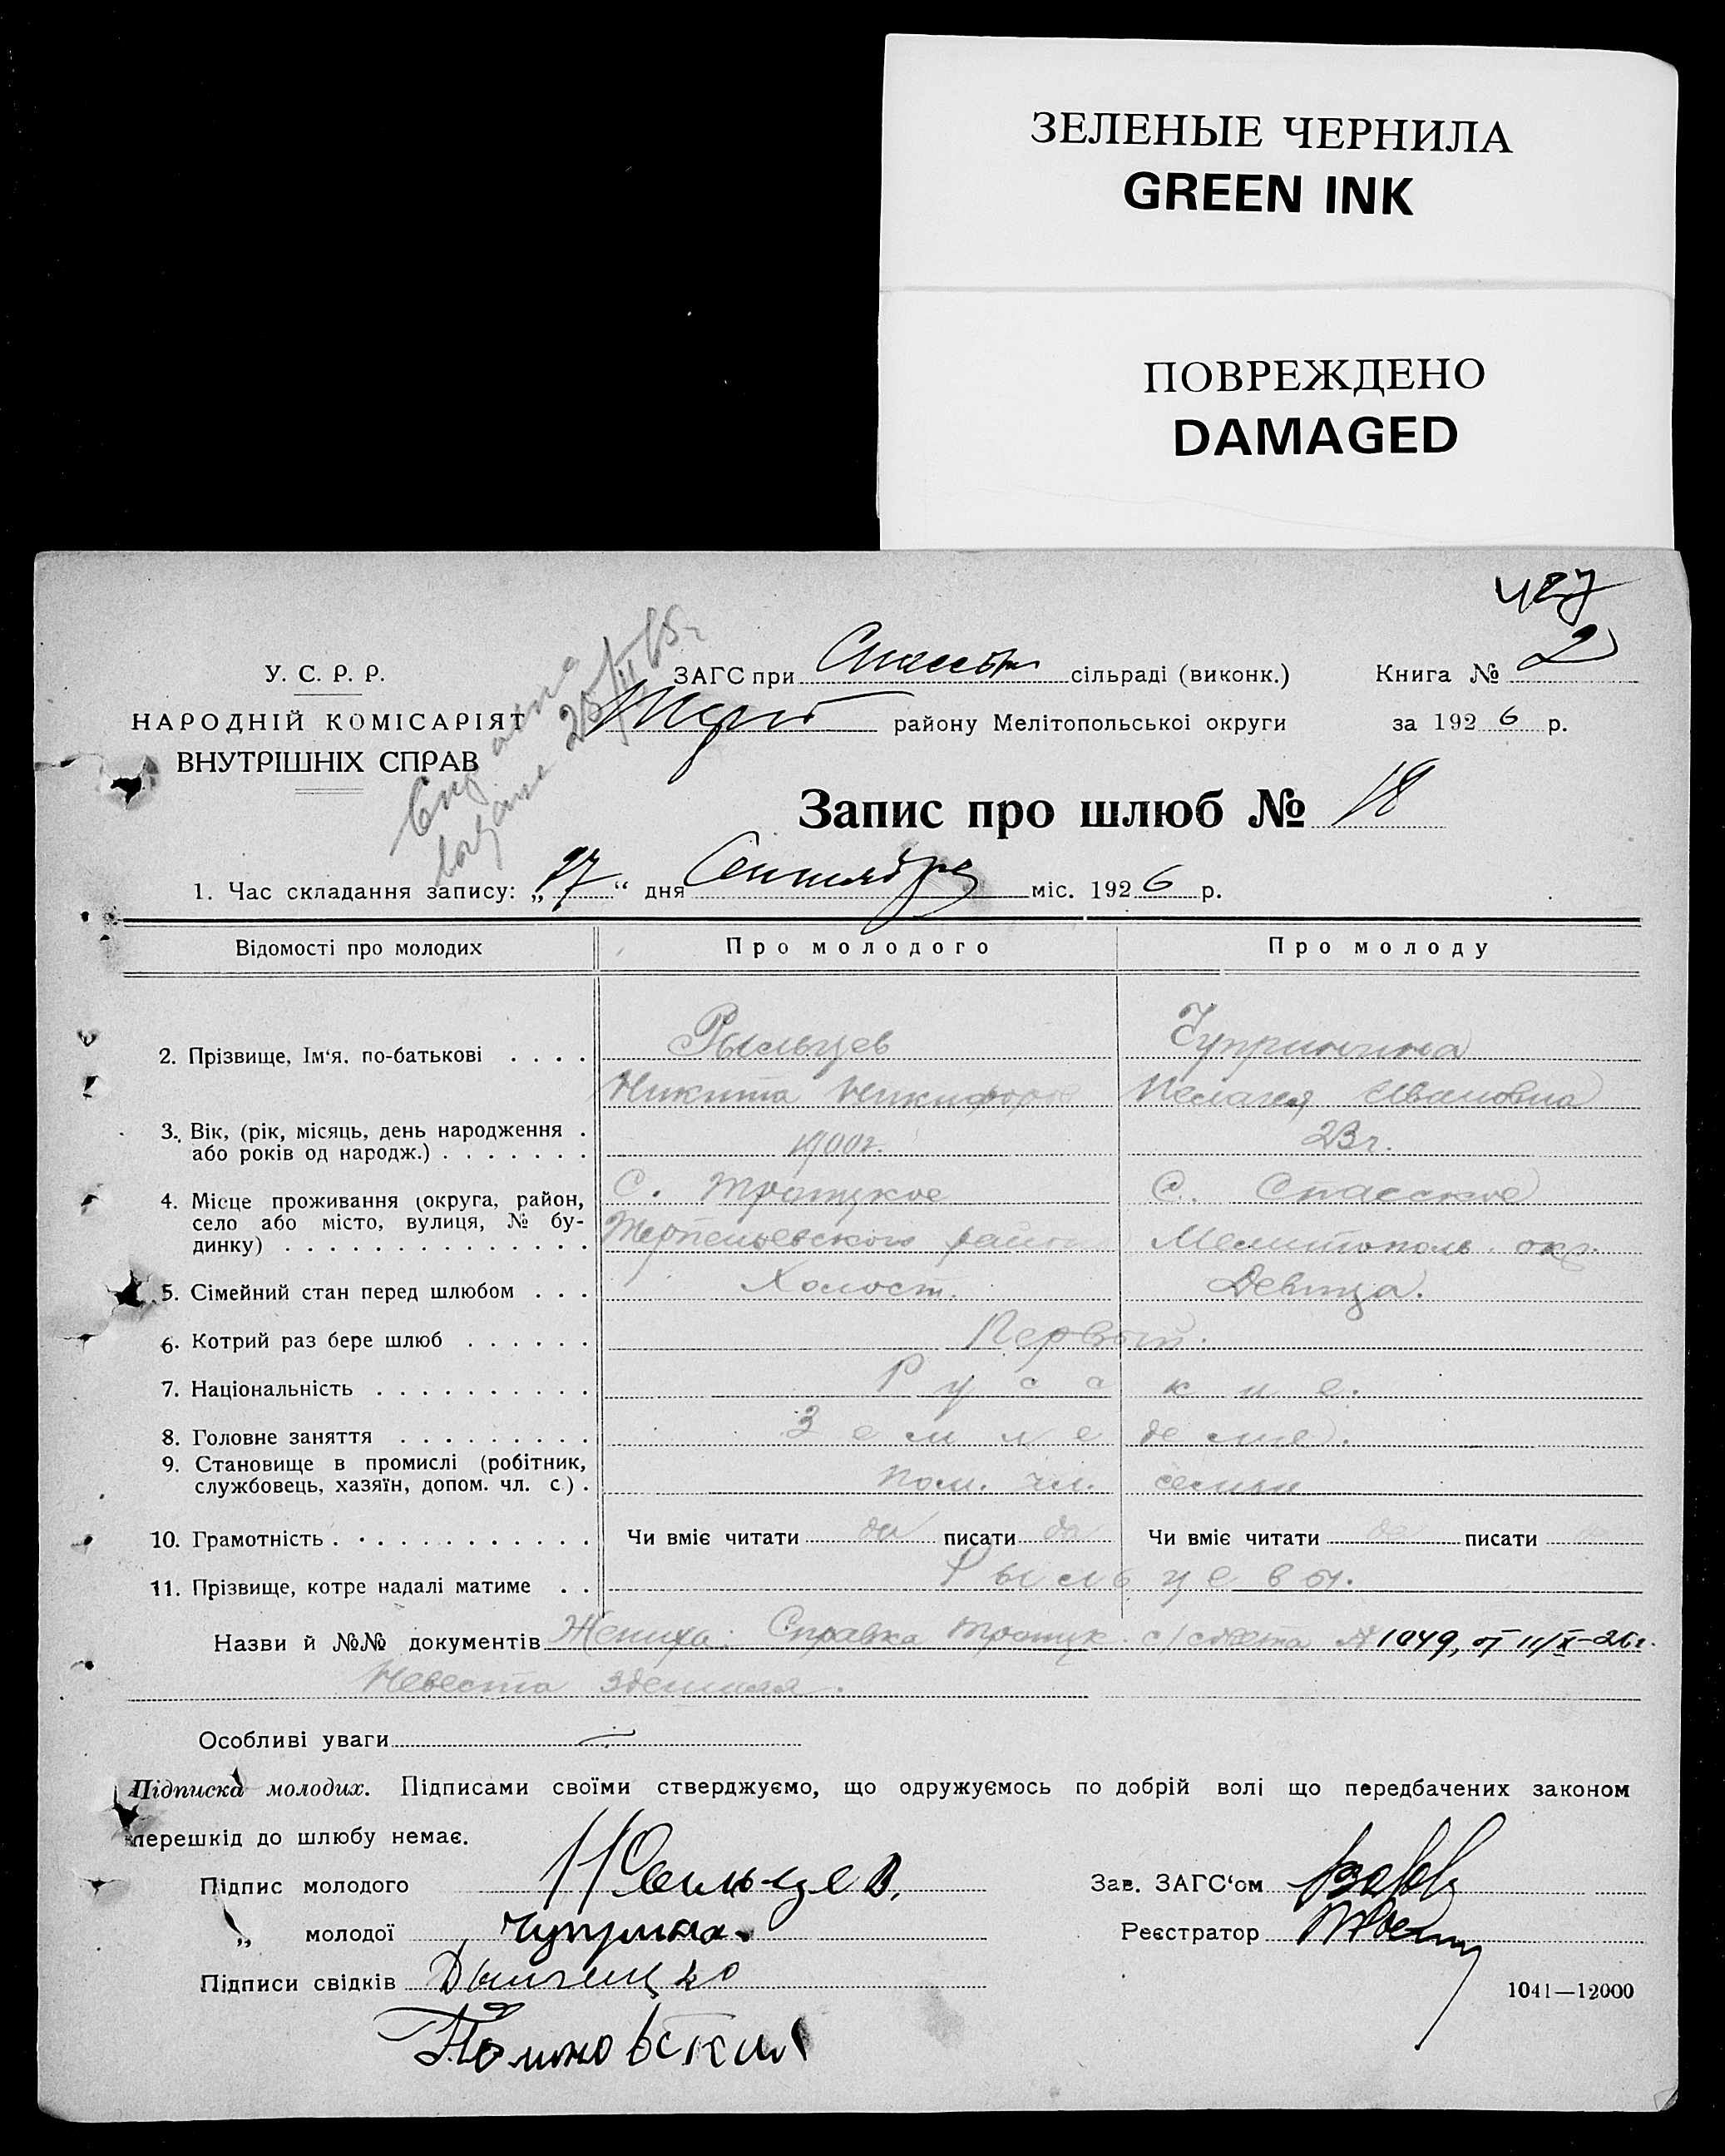 ЗЕЛЕНЫЕ ЧЕРНИЛА
GREEN INK
ПОВРЕЖДЕНО
DAMAGED
427
У. С. Р. Р.
НАРОДНІЙ КОМІСАРІЯТ
ВНУТРІШНІХ СПРАВ
ЗАГС при сільраді (виконк.)
Книга № 2
району Мелітопольської округи
за 1926 р.
Запис про шлюб № 18
1. Час складання запису: „27“ дня Сентября міс. 1926 р.
Відомості про молодих Про молодого Про молоду
2. Прізвище, Ім'я. по-батькові . . . . Рыльцев Чупринина
Никита Никифоров Пелагея Ивановна
3. Вік, (рік, місяць, день народження . або років од народж.) . . . . . . . 1900г. 23 г.
4. Місце проживання (округа, район, С. Троицкое С. Спасское
село або місто, вулиця, № бу-
динку) . . . . . . . . . . . . . . Терпеньевского район Мелитополь. окр.
5. Сімейний стан перед шлюбом . . . Холост. Девица.
6. Котрий раз бере шлюб . . . . . . Первый.
7. Національність . . . . . . . . . . Русские.
8. Головне заняття . . . . . . . . . Земледелие.
9. Становище в промислі (робітник,
службовець, хазяїн, допом. чл. с.) . пом. чл. семьи
10. Грамотність . . . . . . . . . . . . Чи вміє читати да писати да Чи вміє читати да писати
11. Прізвище, котре надалі матиме . . Рыльцевы.
Назви й №№ документів Жениха: Справка Троицк. с/совета № 1049, от 11/IX-26г.
Невеста здешняя.
Особливі уваги —
Підписка молодих. Підписами своїми стверджуємо, що одружуємось по добрій волі що передбачених законом
перешкід до шлюбу немає.
Підпис молодого Н Рыльцев.
Зав. ЗАГС'ом
„ молодої Чуприна.
Реєстратор
Підписи свідків
1041—12000